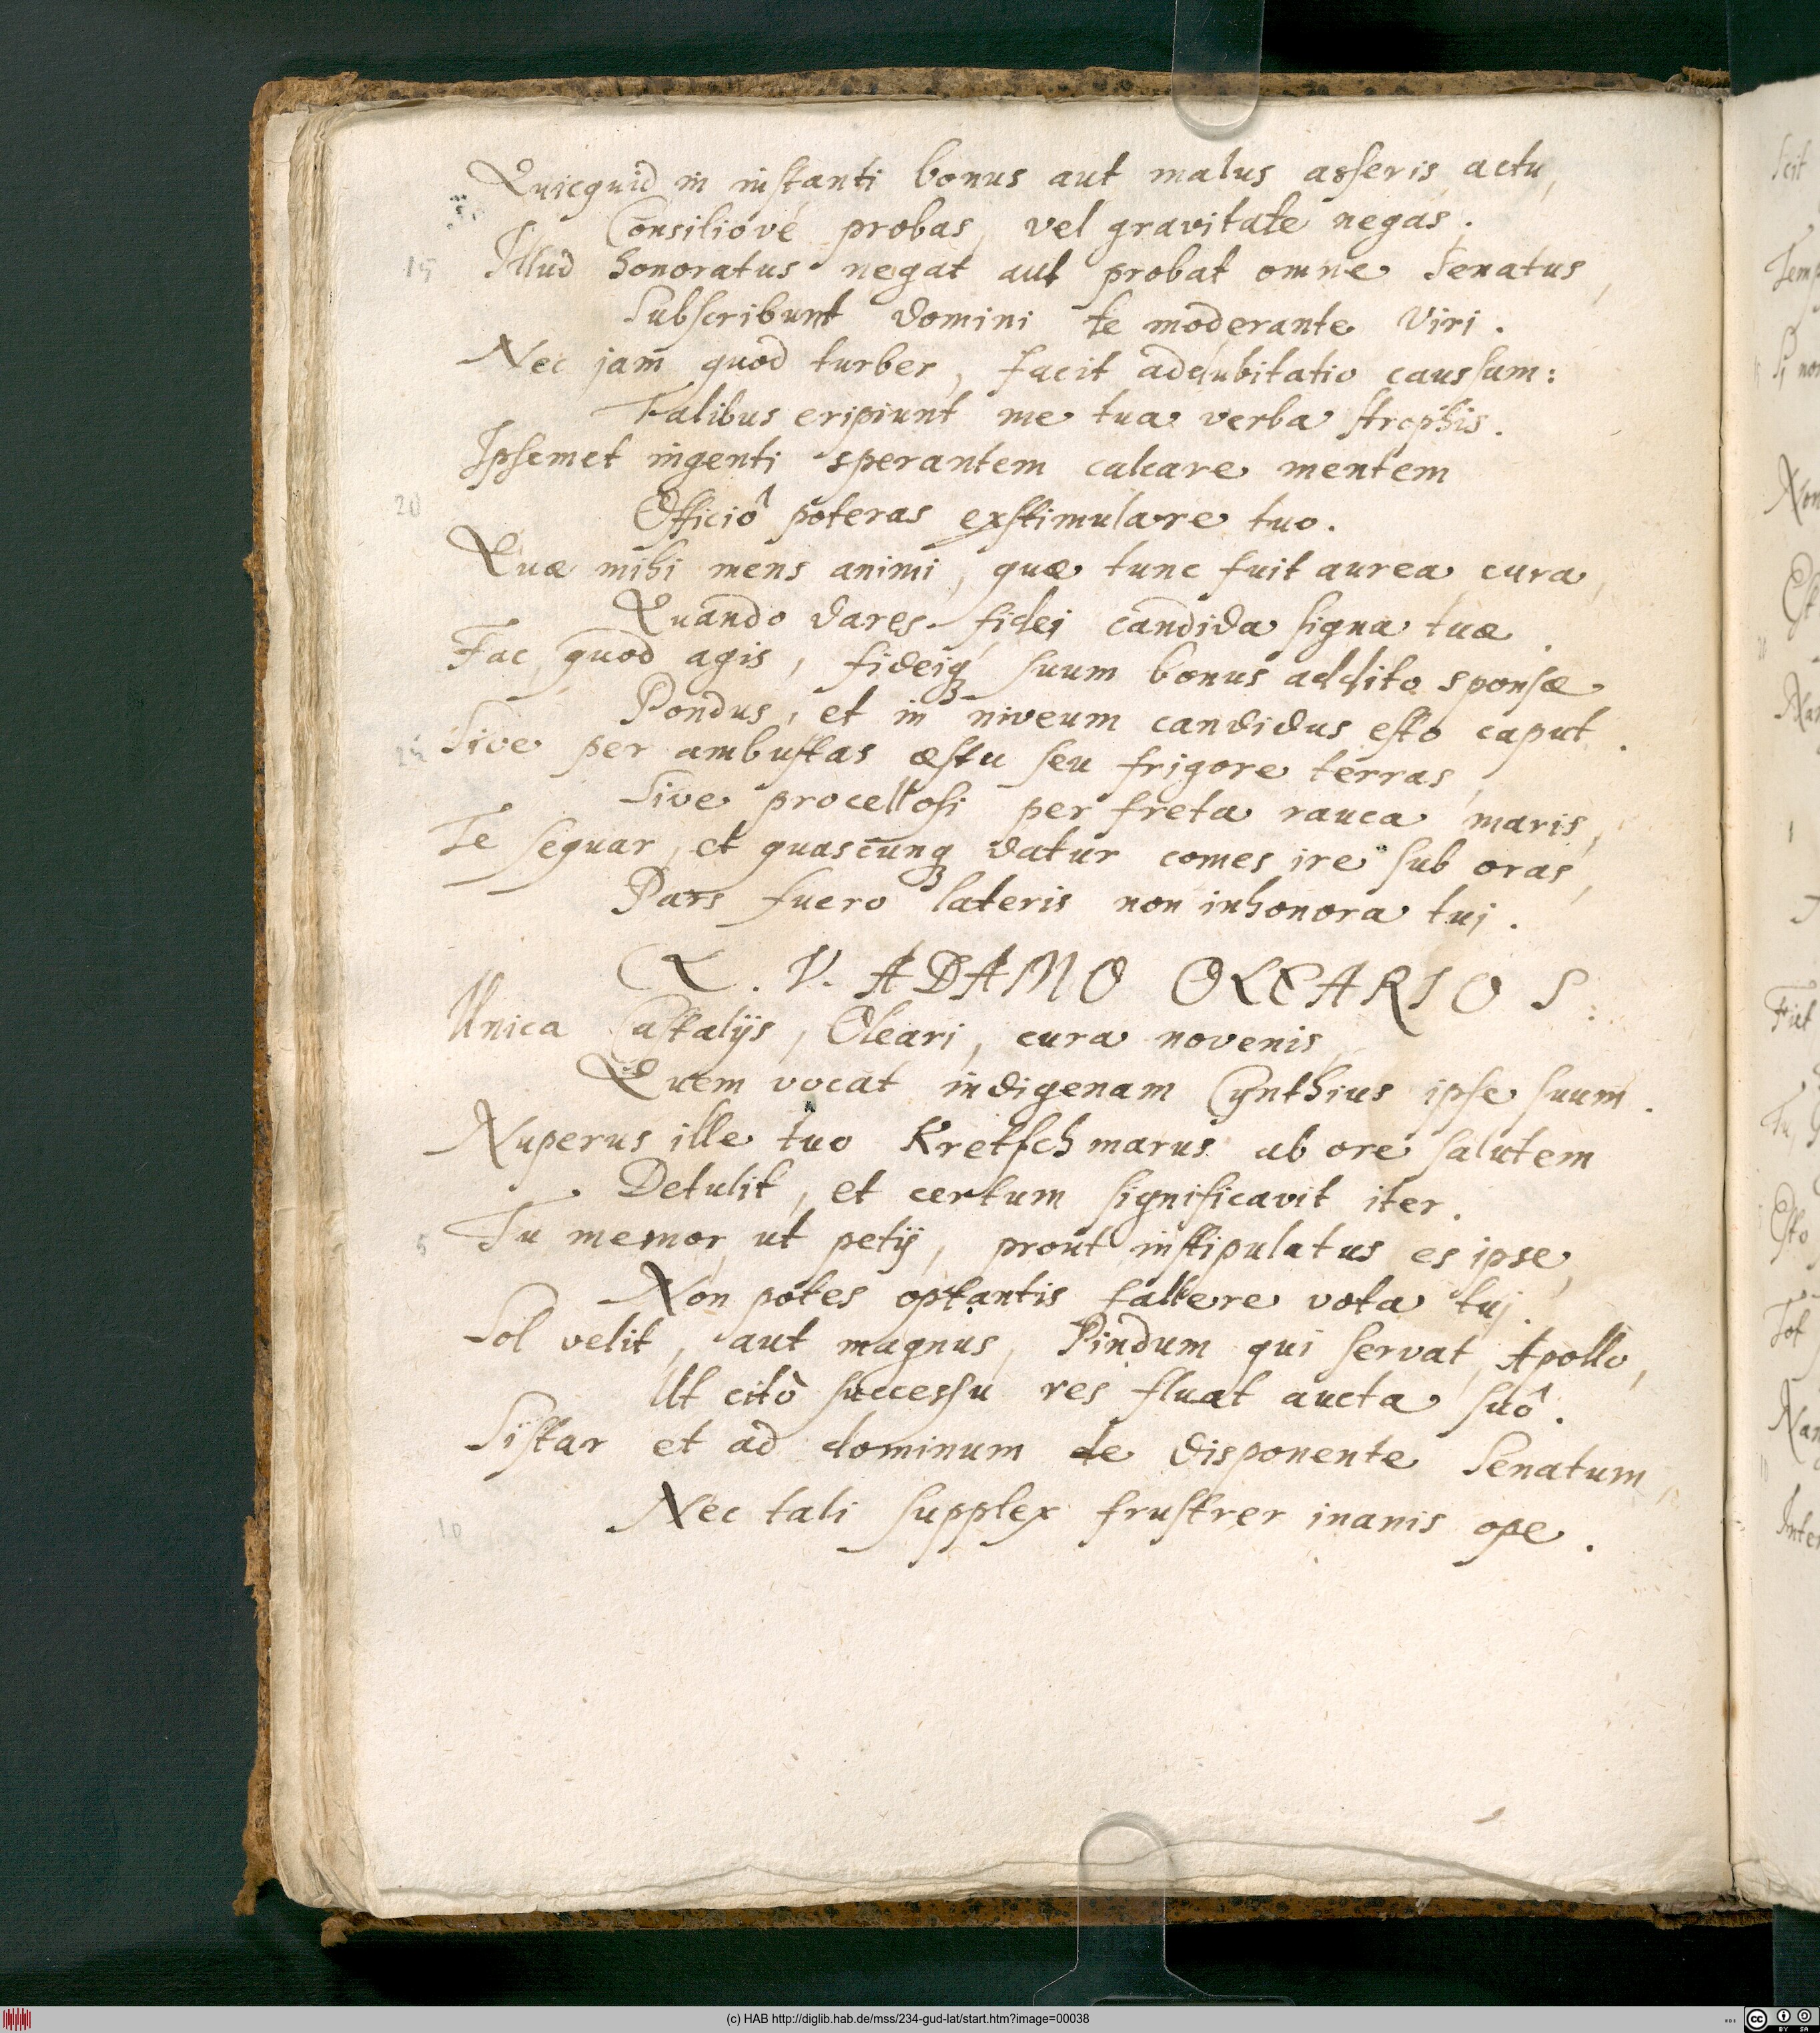 Quicquid in instanti bonus aut malus asseris actu,
Consiliové probas, vel gravitate negas.
15 Illud honoratus negat aut probat omne Senatus,
Subscribunt domini te moderante Viri.
Nec jam quod turber, facit addubitatio caussam:
Talibus eripiunt me tua verba strophis.
Ipsemet ingenti sperantem calcare mentem
20 Officiô poteras exstimulare tuo.
Quæ mihi mens animi, quæ tunc fuit aurea cura,
Quando dares fidei candida signa tuæ.
Fac, quod agis, fideiq; suum bonus addito sponsæ
Pondus, et in niveum candidus esto caput.
25 Sive per ambustas æstu seu frigore terras,
Sive procellosi per freta rauca maris,
Te sequar, et quascunq; datur comes ire sub oras,
Pars fuero lateris non inhonora tui.
CL. V. ADAMO OLEARIO S:
Unica Castalijs, Oleari, cura novenis,
Quem vocat indigenam Cynthius ipse suum.
Nuperus ille tuo Kretschmarus ab ore salutem
Detulit, et certum significavit iter.
5 Tu memor, ut petij, prout instipulatus es ipse,
Non potes optantis fallere vota tui.
Sol velit, aut magnus, Pindum qui servat, Apollo,
Ut citò successu res fluat aucta suô.
Sistar et ad dominum te disponente Senatum,
10 Nec tali supplex frustrer inanis ope.
(c) HAB http://diglib.hab.de/mss/234-gud-lat/start.htm?image=00038